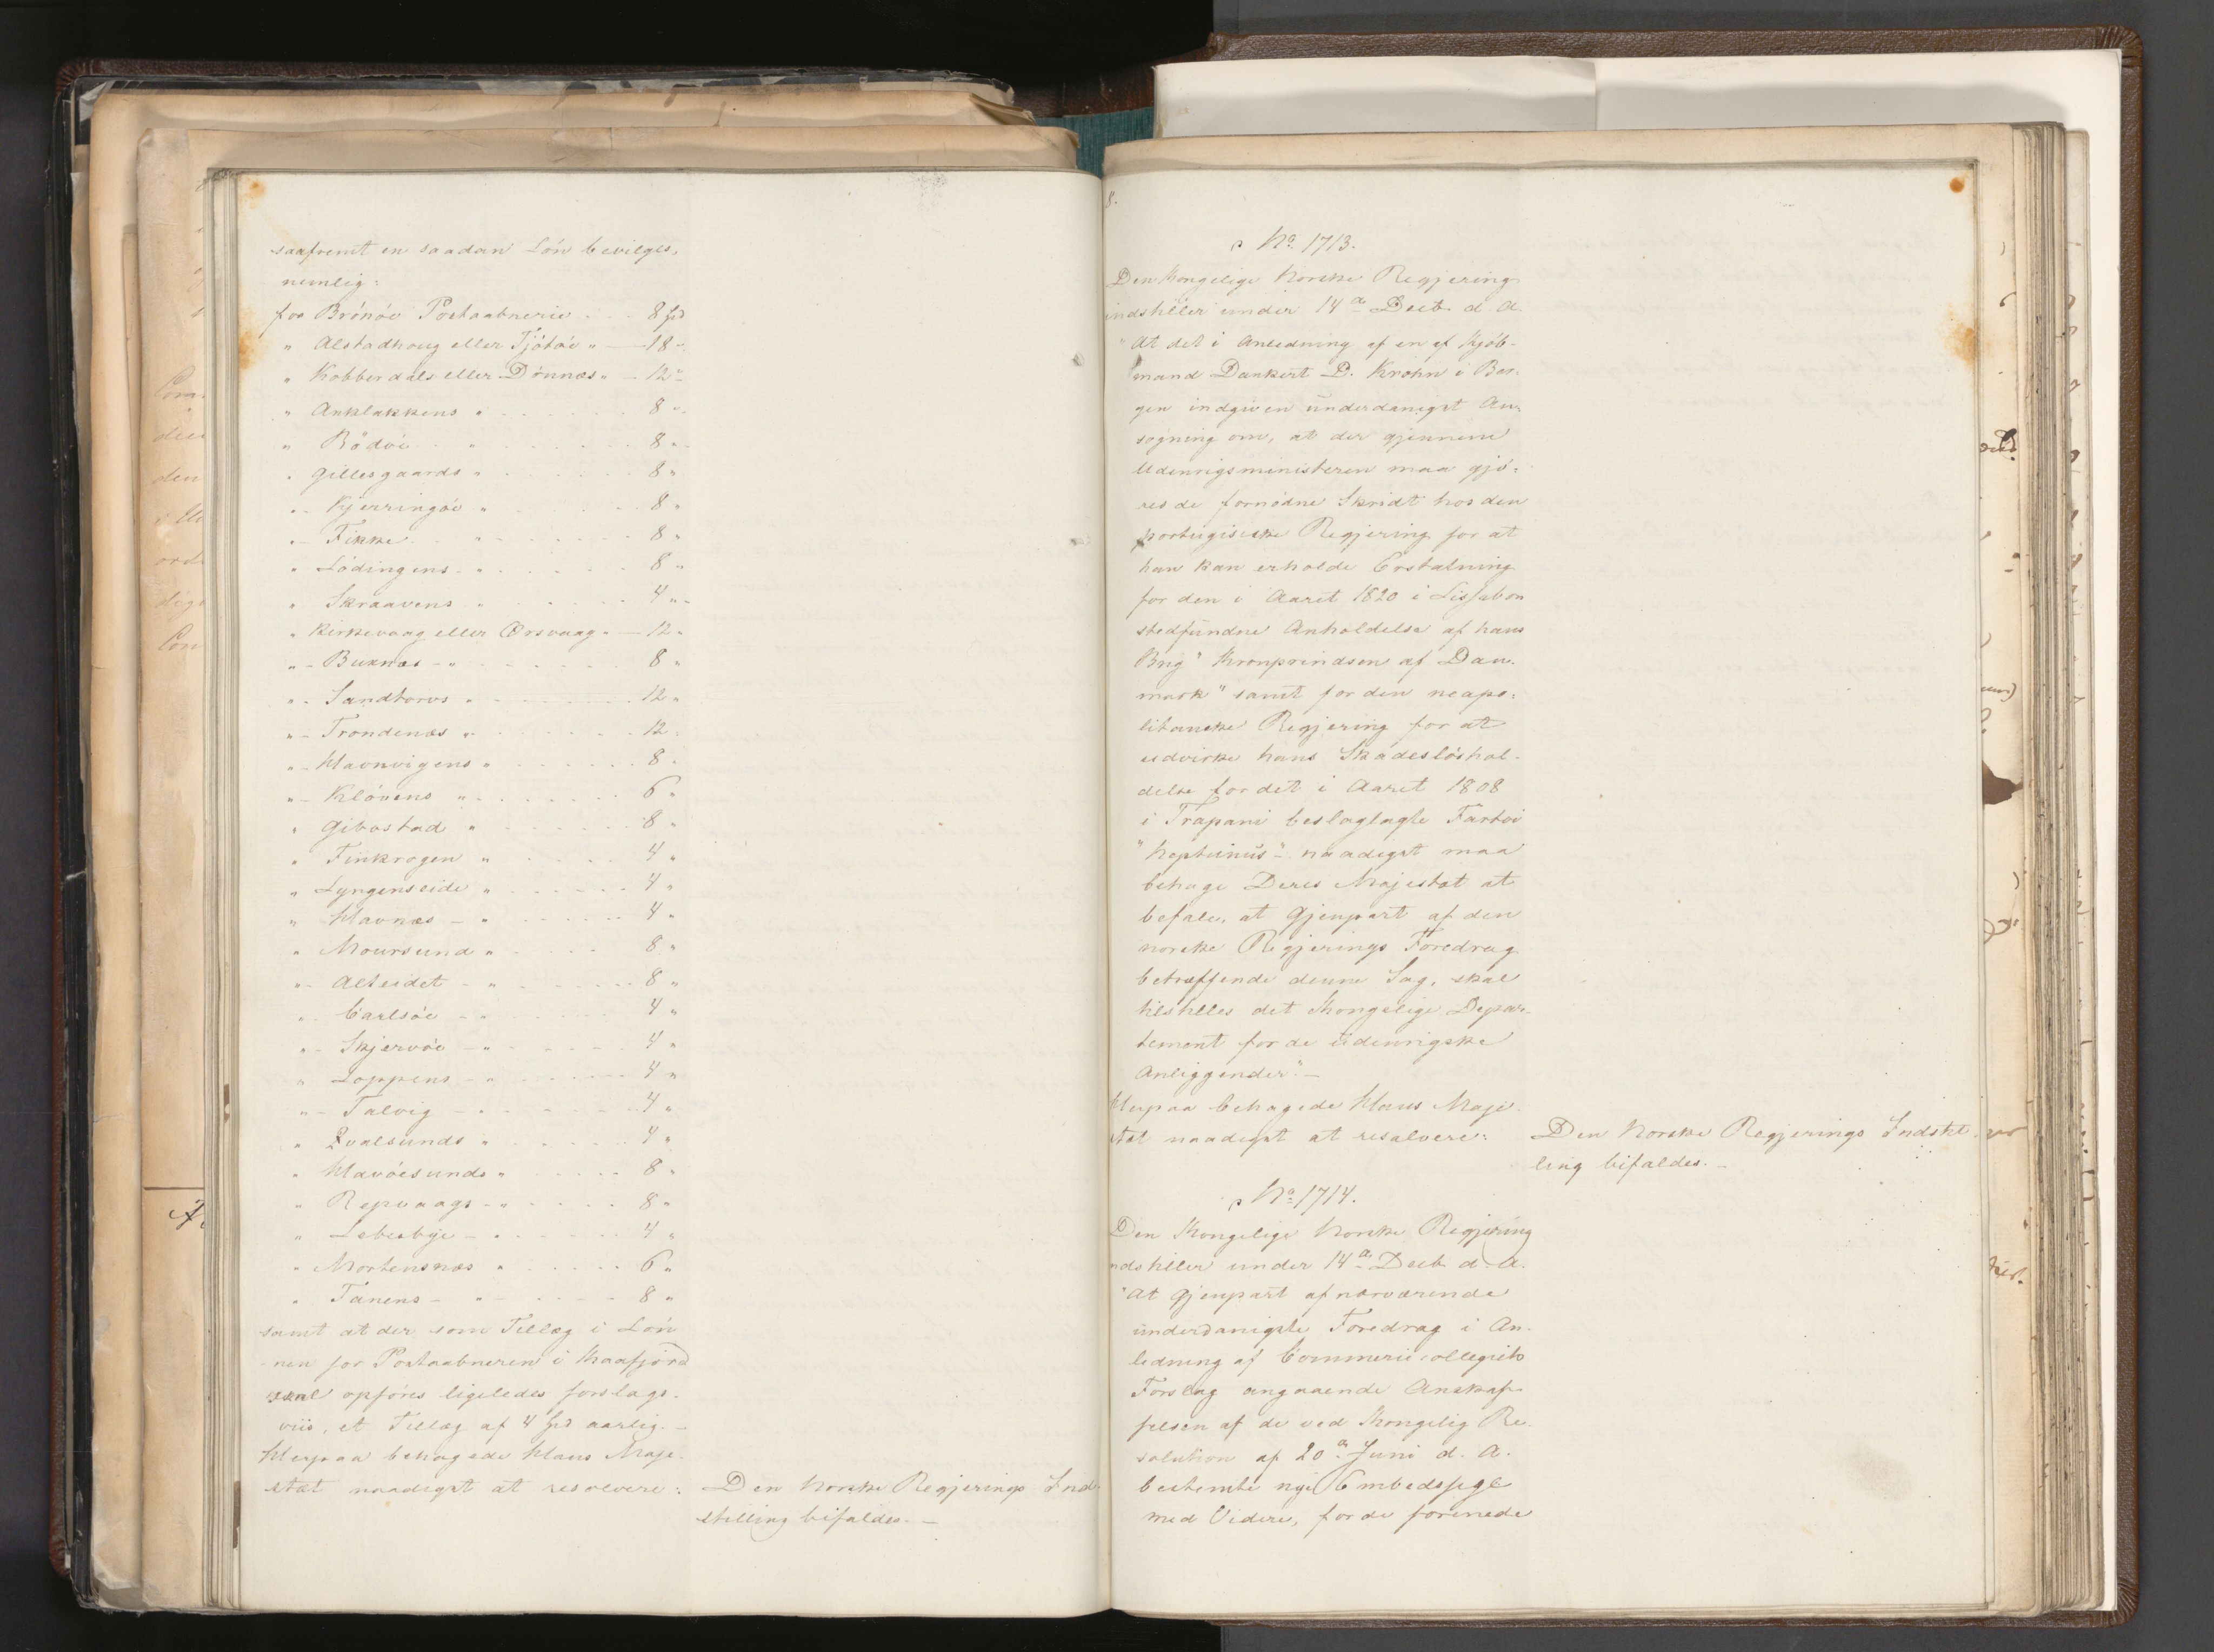 saafremt en saadan Lön bevilges,
nemlig:
for Brönöe Postaabnerie - - - 8 Spd
" Alstadhoug eller Tjötöe " — 18 "
" Kobberdals eller Dönnæs " - 12 "
" Anklakkens " - - - - - - 8 "
" Bödöe - " - - - - - - 8 "
" Gillesgaards " - - - - - - 8 "
" - Kjerringöe " - - - - - - 8 "
" - Fikke - " - - - - - - 8 "
" Lödingens - " - - - - - - 8 "
" Skraavens " - - - - - - 4 "
" Kirkevaag eller Örsvaag " — 12 "
" - Buknæs - " - - - - - - 8 "
" - Sandtorvs " - - - - - - 12 "
" - Trondenæs " - - - - - - 12 "
" - Havnvigens " - - - - - - 8 "
" - Klövens " - - - - - - 6 "
" Gibostad " - - - - - - 8 "
" Finkrogen " - - - - - 4 "
" Lyngenseide " - - - - - - 4 "
" Havnæs - " - - - - - - 4 "
" Moursund " - - - - - 8 "
" - Alteidet - " - - - - - - 8 "
" - Carlsöe - " - - - - - - 4 "
" - Skjervöe - " - - - - - - 4 "
" Loppens - " - - - - - - 4 "
" - Talvig - " - - - - - - 4 "
" Qvalsunds " - - - - - - 4 "
" Havöesunds " - - - - - 8 "
" Repvaags - " - - - - - 8 "
" Lebesbye - " - - - - - 4 "
" Mortensnæs " - - - - - - 6 "
" Tanens - " - - - - - 8 "
samt at der som Tillæg i Lön
-nen for Postaabneren i Kaafjord
skal opföres ligeledes forslags-
viis, et Tillæg af 4 Spd aarlig. —
Herpaa behagede Hans Maje-
stæt naadigst at resolvere:
Den Norske Regjerings Ind-
stilling bifaldes. —
8.
No 1713.
Den Kongelige Norske Regjering
indstiller under 14de Decb. d. A.
"At det i Anledning af en af Kjöb-
mand Dankert D. Krohn i Ber-
gen indgiven underdanigst An-
sögning om, at der gjennem
Udenrigsministeren maa gjö-
res de fornödne Skridt hos den
portugisiske Regjering for at
han kan erholde Erstatning
for den i Aaret 1820 i Lissabon
stedfundne Anholdelse af hans
Brig "Kronprindsen af Dan-
mark" samt for den neapo-
litanske Regjering for at
udvirke hans Skadeslöshol-
delse for det i Aaret 1808
i Trapani beslaglagte Fartöi
"Neptunus" - naadigst maa
behage Deres Majestæt at
befale, at Gjenpart af den
norske Regjerings Foredrag
betræffende denne Sag, skal
tilstilles det Kongelige Depar-
tement for de udenrigske
Anliggender". —
Herpaa behagede Hans Maje-
stæt naadigst at resolvere:
Den Norske Regjerings Indstil-
ling bifaldes. —
No 1714.
Den Kongelige Norske Regjering
indstiller under 14de Decb. d. A.
"At Gjenpart af nærværende
underdanigste Foredrag i An-
ledning af Commerce-collegiets
Forslag angaaende Anskaf-
felsen af de ved Kongelig Re-
solution af 20de Juni d. A.
bestemte nye Embedssegl
med Videre, for de forenede